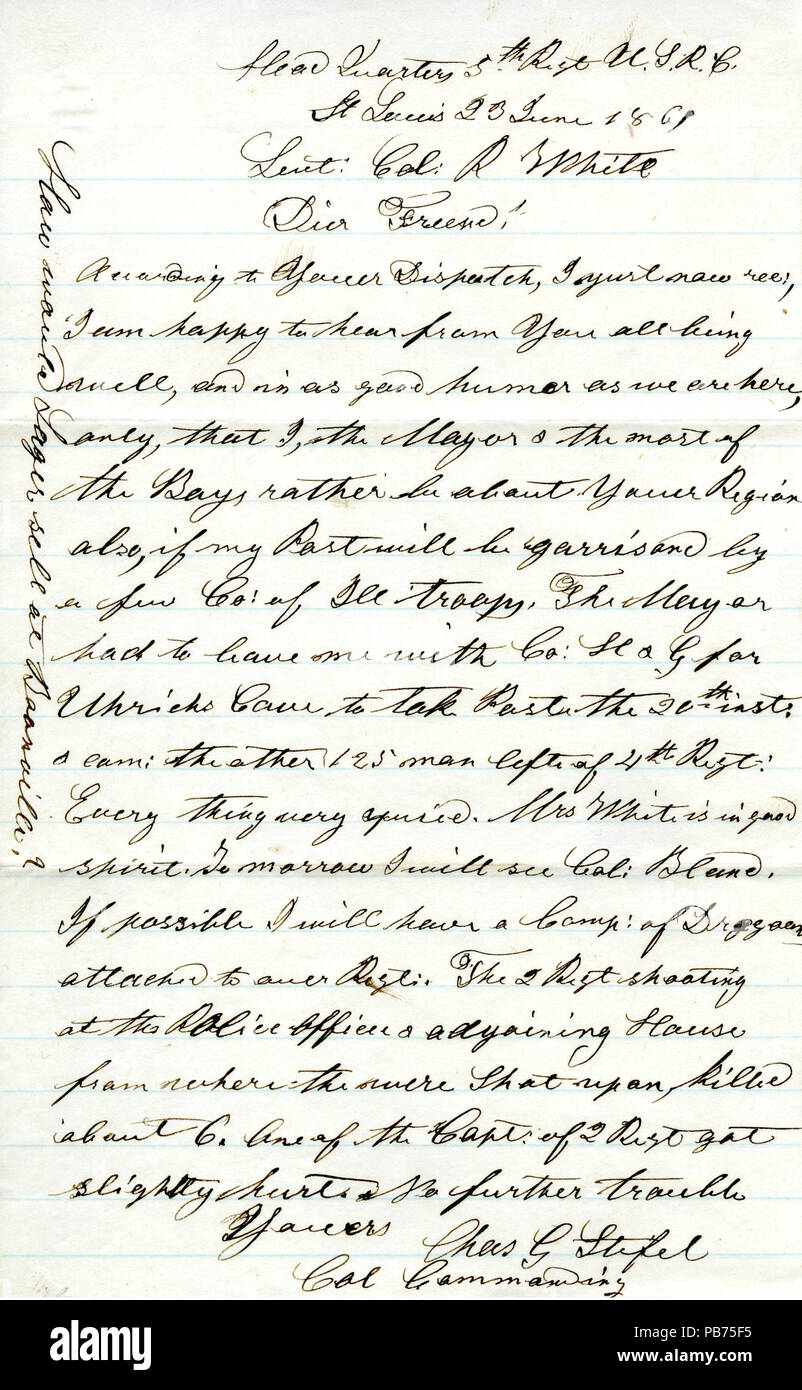 Head Quarters 5th Regt U.S.R.C.
St Louis 23 June 1861
Leut: Col: R White
Dier Freend!
According to Youer Dispatch, I yust now rec:,
I am happy to hear from You all being
well, and in as good humor as we are here,
only, that I, the Mayor & the most of
the Boys rather be about Youer Region
also, if my Post will be garrisond by
a few Co: of Ill troops. The Mayor
had to leave me with Co: H & G for
Uhrichs Cave to tak Poste the 20th inst:
& com: the other 125 man lefte of 4th Regt:
Every thing very quied. Mrs White is in good
spirit. To morrow I will see Col: Bland.
If possible I will have a Comp: of Dragoons
attached to ouer Regt:. The 2 Regt shooting
at the Police office & adyoining House
from where the were Shot upon, killed
about 6. One of the Capt: of 2 Regt got
slightly hurt. No further trouble
Youers
Chas G Stifel
Col Commanding
How would Lager sell at Boonville?
alamy
Image ID: PB75F5
www.alamy.com